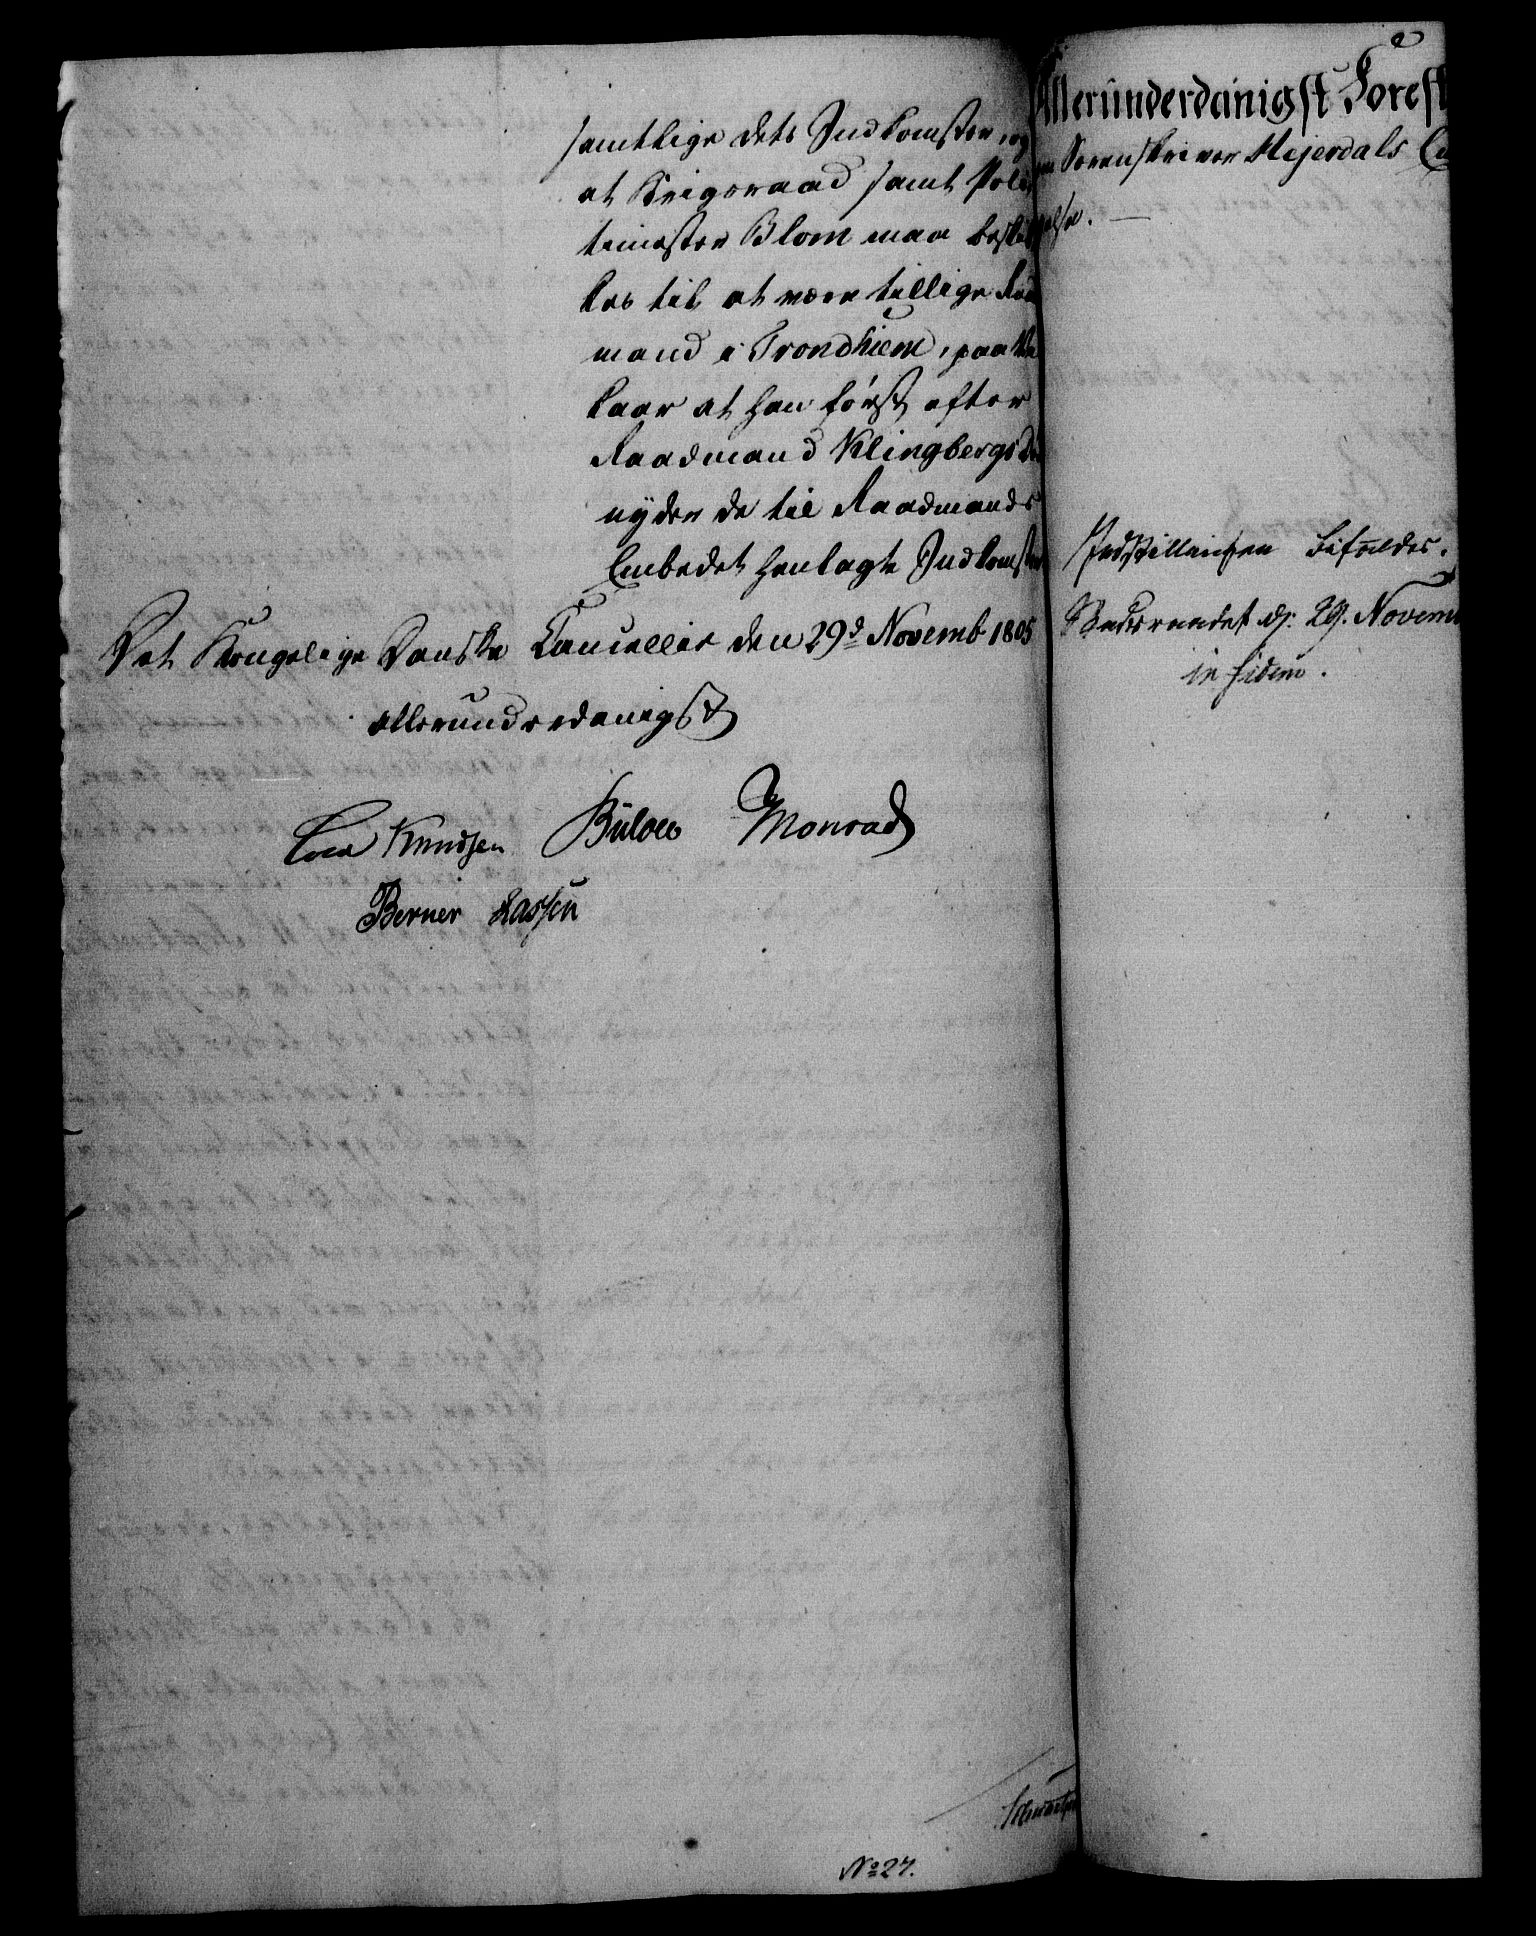 samtlige dets Indkomster, og
at Krigsraad samt Poli-
timester Blom maa beskik-
kes til at være tillige Raad-
mand i Trondhiem, paa Vil-
kaar at han først efter
Raadmand Klingbergs Død
nyder de til Raadmands
Embedet henlagte Indkomster
Det Kongelige Danske Cancellie den 29d Novemb 1805
allerunderdanigst
Knudsen Bülow Monrad
Berner Lassen
No 27.
Allerunderdanigst Forest
Sorenskriver Mejerdals
else.
Indstillingen bifaldes.
d. 29. Novem
in fidem.